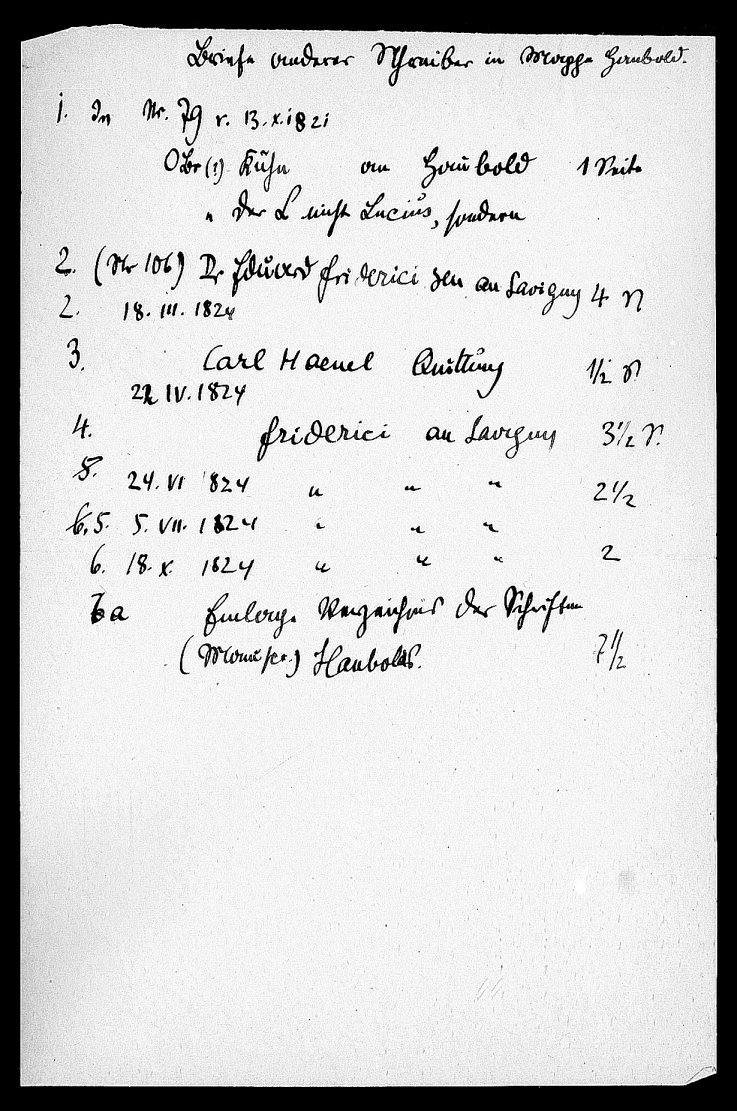 Briefe anderer Schreiber in Mappe Haubold.
1. In Nr. 79 v. 13.X.1821
(1) Kühn an Haubold 1 Seite
" der L nicht Lucius, sondern
2. (Nr 106) Dr Eduard Friderici sen an Savigny 4 S
2. 18.III.1824
3. Carl Haenel Quittung 1/2 S
22 IV.1824
4. Friderici an Savigny 3 1/2 S.
5. 24.VI 1824 " " " 2 1/2
6. 5. 5.VII.1824 " " "
6. 18.X. 1824 " " " 2
6a Einlage Verzeichnis der Schriften
(Manuscr.) Haubolds. 7 1/2